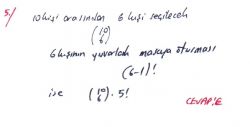 5./ 10 kişi arasından 6 kişi seçilecek
(10
6)
6 kişinin yuvarlak masaya oturması
(6-1)!
ise (10
6) . 5!
CEVAP: E